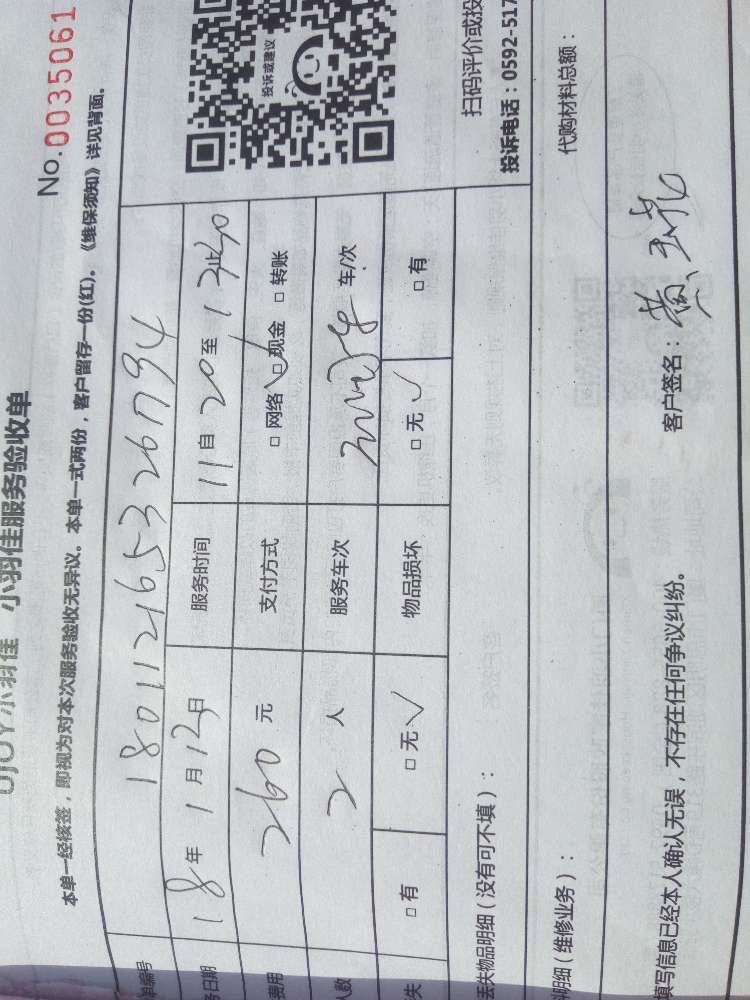 No.0035061
UJOY小羽佳 小羽佳服务验收单
本单一经核签，即视为对本次服务验收无异议。本单一式两份，客户留存一份(红)。《维保须知》详见背面。
单编号 180112165326794
务日期 18年1月12日 服务时间 11自20至1止
费用 260元 支付方式 □网络 □现金 □转账
人数 2人 服务车次 车/次
失 □有 □无 物品损坏 □无 □有
投诉或建议
扫码评价或投
投诉电话：0592-517
丢失物品明细（没有可不填）：
明细（维修业务）： 代购材料总额：
填写信息已经本人确认无误，不存在任何争议纠纷。 客户签名：黄